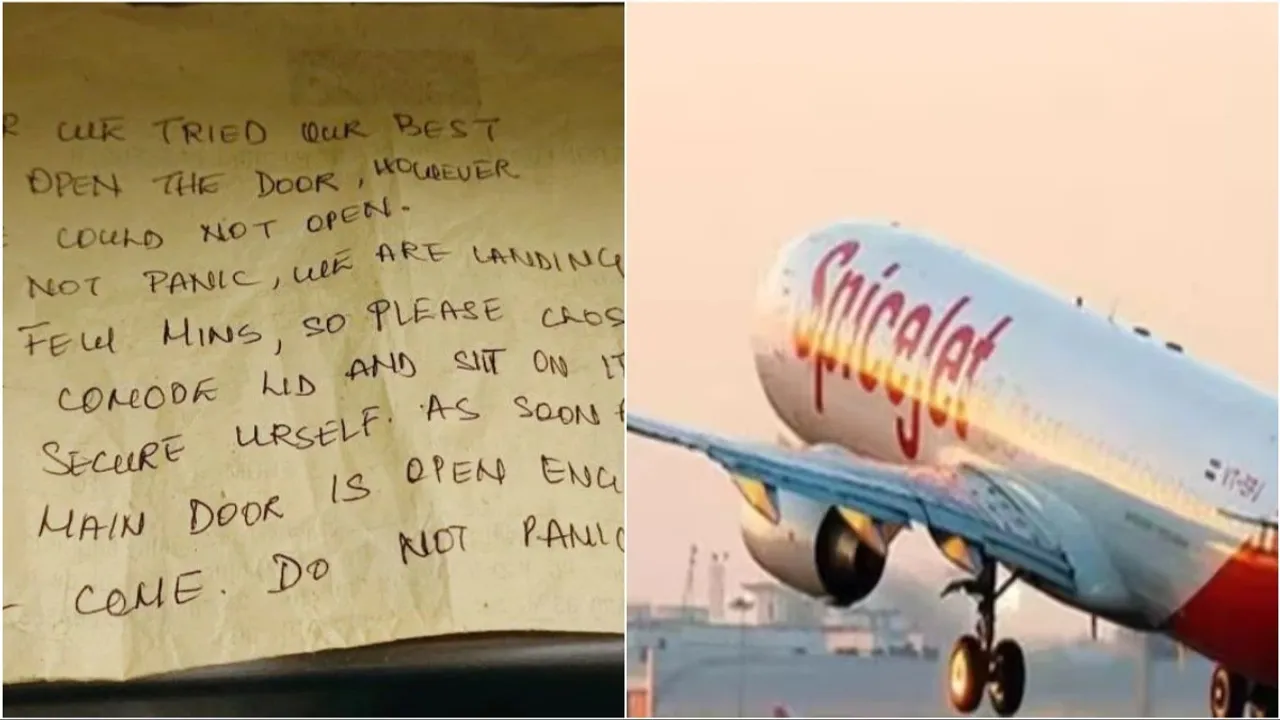 R WE TRIED OUR BEST
OPEN THE DOOR, HOWEVER
E COULD NOT OPEN.
NOT PANIC, WE ARE LANDING
FEW MINS, SO PLEASE CLOS
COMODE LID AND SIT ON IT
SECURE URSELF. AS SOON
MAIN DOOR IS OPEN ENG
COME. DO NOT PANIC
SpiceJet